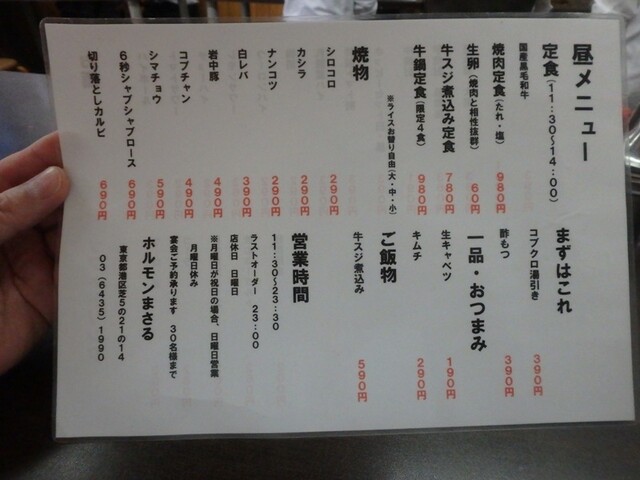 昼メニュー
定食(11:30～14:00)
国産黒毛和牛
焼肉定食(たれ・塩) 980円
生卵(焼肉と相性抜群) 60円
牛スジ煮込み定食 780円
牛鍋定食(限定4食) 980円
※ライスお替り自由(大・中・小)
焼物
シロコロ 290円
カシラ 290円
ナンコツ 290円
白レバ 390円
岩中豚 490円
コプチャン 490円
シマチョウ 590円
6秒シャブシャブロース 690円
切り落としカルビ 690円
まずはこれ
コブクロ湯引き 390円
酢もつ 390円
一品・おつまみ
生キャベツ 190円
キムチ 290円
ご飯物
牛スジ煮込み 590円
営業時間
11:30～23:30
ラストオーダー 23:00
店休日 日曜日
※月曜日が祝日の場合、日曜日営業
月曜日休み
宴会ご予約承ります 30名様まで
ホルモンまさる
東京都港区芝5の21の14
03(6435)1990